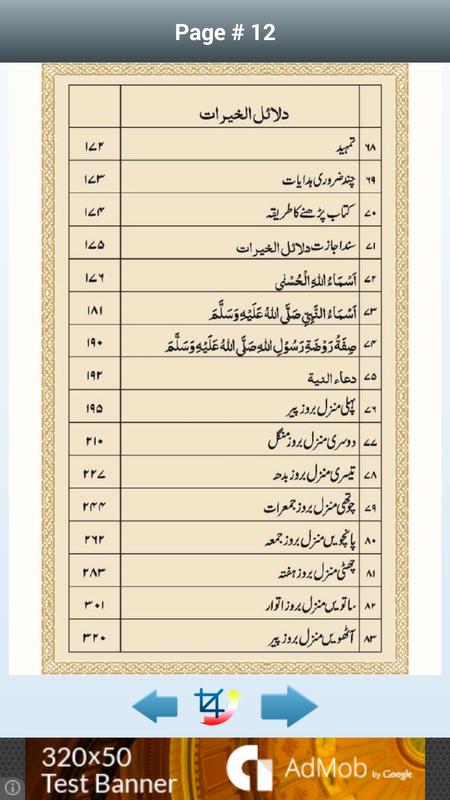 Page # 12
دلائل الخیرات
۶۸ تمہید ۱۷۲
۶۹ چند ضروری ہدایات ۱۷۳
۷۰ کتاب پڑھنے کا طریقہ ۱۷۴
۷۱ سند اجازت دلائل الخیرات ۱۷۵
۷۲ اَسْمَاءُ اللهِ الْحُسْنٰى ۱۷۶
۷۳ اَسْمَاءُ النَّبِيِّ صَلَّى اللهُ عَلَيْهِ وَسَلَّمَ ۱۸۱
۷۴ صِفَةُ رَوْضَةِ رَسُوْلِ اللهِ صَلَّى اللهُ عَلَيْهِ وَسَلَّمَ ۱۹۰
۷۵ دعاء النية ۱۹۲
۷۶ پہلی منزل بروز پیر ۱۹۵
۷۷ دوسری منزل بروز منگل ۲۱۰
۷۸ تیسری منزل بروز بدھ ۲۲۷
۷۹ چوتھی منزل بروز جمعرات ۲۴۴
۸۰ پانچویں منزل بروز جمعہ ۲۶۲
۸۱ چھٹی منزل بروز ہفتہ ۲۸۳
۸۲ ساتویں منزل بروز اتوار ۳۰۱
۸۳ آٹھویں منزل بروز پیر ۳۲۰
320×50
Test Banner
AdMob by Google